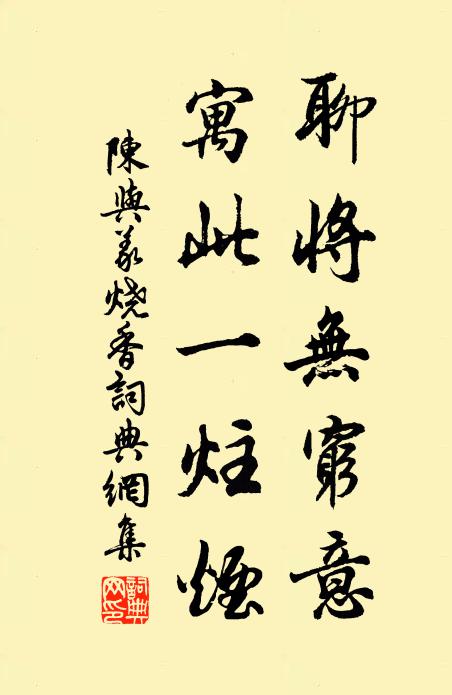 聊將無窮意
寓此一炷煙
陳與義燒香詞典網集
詞典網印